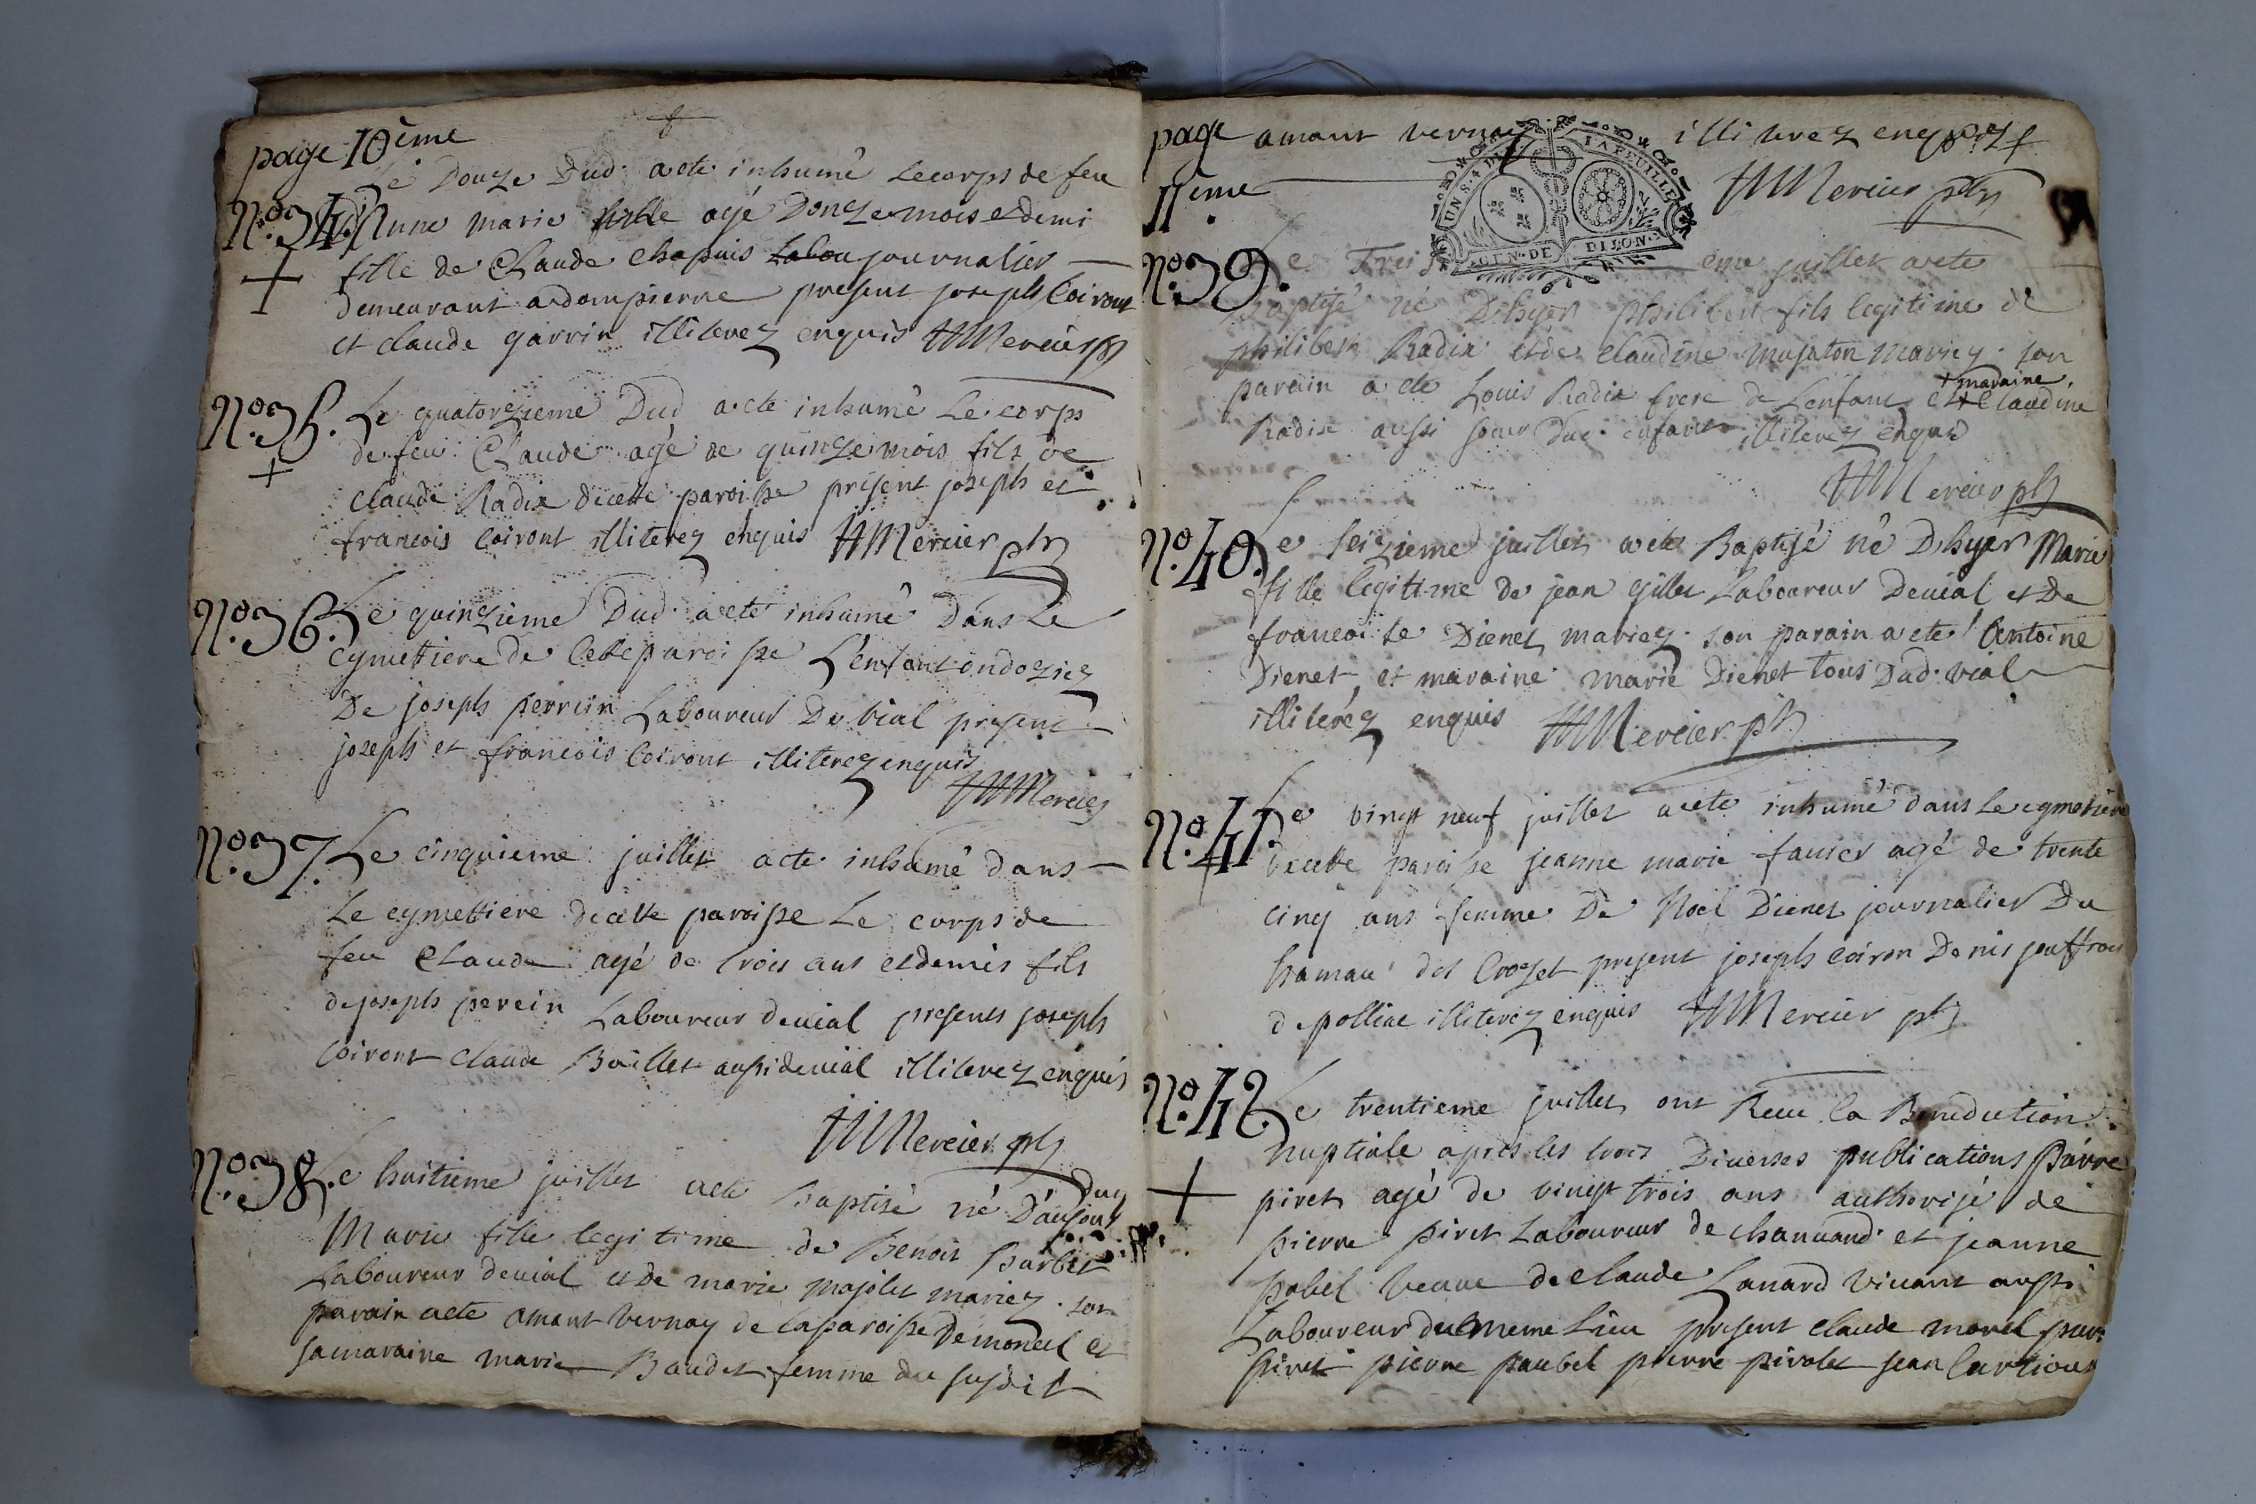 page 10ème
Le Douze Dud. a ete inhumé Le corps de feu
No. 34. Anne marie fille agé Donze mois et demi
fille de Claude Chapuis Labou journalier
demeurant a dompierre present joseph Coiront
et claude garrin illiterez enquis Mercier ptr
No. 35. Le quatorzieme Dud a ete inhumé Le corps
de feu Claude agé de quinze mois fils de
claude Radix de cette paroisse présent joseph et
francois Coiront illiterez enquis Mercier ptr
No. 36. Le quinzieme Dud a ete inhumé Dans Le
Cymettiere de Cette paroisse L'enfant ondoziez
De joseph perrin Laboureur De vial present
joseph et francois Coiront illiterez enquis
Mercier
No. 37. Le cinquieme juillet a ete inhumé dans
Le cymettiere de cette paroisse Le corps de
feu Claude agé de trois ans et demis fils
de joseph perein Laboureur de vial presents joseph
Coiront Claude Boillet aussi de vial illiterez enquis
Mercier ptr
No. 38. Le huitieme juillet a ete baptisé né D'aujourd
duy
Marie fille legitime de Benoit Barbet
Laboureur de vial et de marie majolet mariez. son
parain a ete amant vernay de la paroisse De moncel et
sa maraine marie Baudet femme du susdit
page amant vernay illiterez enquez
11ème
Mercier ptr
UN S. 4 D. LA FEUILLE
GEN. DE DIJON
No. 39. Le Treizieme juillet a ete
baptisé né D'hyer philibert fils legitime de
philibert Radix et de claudine mujaton mariez. son
parain a ete Louis Radix frere de L'enfant et Claudine
+ maraine
Radix aussi soeur Dud. enfant illiterez enquis
Mercier ptr
No. 40. Le seizieme juillet a ete Baptisé né D'hyer Marie
fille legitime de jean gillet Laboureur De vial et De
francoise Dienet mariez. son parain a ete Antoine
Dienet et maraine marie Dienet tous Dud. vial
illiteréz enquis Mercier ptr
No. 41. Le vingt neuf juillet a ete inhumé dans Le cymetiere
de cette paroisse jeanne marie favier agé de trente
cinq ans femme De Noel Dienet journalier Du
hamau des Crozet present joseph coiron Denis jouffroy
de polliac illiterez enquis Mercier ptr
No. 42. Le trentieme juillet ont Recu la Benediction
Nuptiale apres les trois Diverses publications Pierre
piret agé de vingt trois ans authorisé de
pierre piret Laboureur de chanuand et jeanne
pobel veuve de claude Lanard vivant aussi
Laboureur du meme Lieu present claude morel pierre
piret pierre paubel pierre pirolet jean